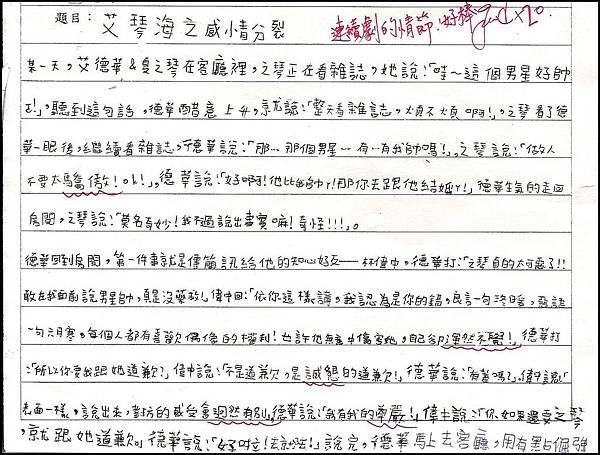 題目：艾琴海之感情分裂
連續劇的情節．好棒
某一天，艾德華&夏之琴在客廳裡，之琴正在看雜誌，她說：「哇～這個男星好帥
ㄛ！」，聽到這句話，德華醋意上升，就說：「整天看雜誌，煩不煩啊！」，之琴看了德
華一眼後，繼續看雜誌，德華說：「那…那個男星…有…有我帥嗎！」，之琴說：「做人
不要太驕傲！ok！」，德華說：「好啊！他比我帥ㄚ！那你去跟他結婚ㄚ！」德華生氣的走回
房間，之琴說：「莫名奇妙！我不過說出事實嘛！奇怪！！！」。
德華回到房間，第一件事就是傳簡訊給他的知心好友——林偉中，德華打：「之琴真的太可惡了！！
敢在我面前說男星帥，真是沒藥救！」偉中回：「依你這樣講，我認為是你的錯，良言一句終暖，惡語
一句六月寒，每個人都有喜歡偶像的權利！也許他無意中傷害她，自己卻渾然不覺！」德華打
：「所以你要我跟她道歉？」偉中說：「不是道歉，是誠懇的道歉！」德華說：「有差嗎？」，偉中說：「
表面一樣，說出來，對方的感受會迥然有別」，德華說：「我有我的尊嚴！」偉中說：「你如果還愛之琴
，就跟她道歉」，德華說：「好啦！去就去！」說完，德華馬上去客廳，用有點倔強